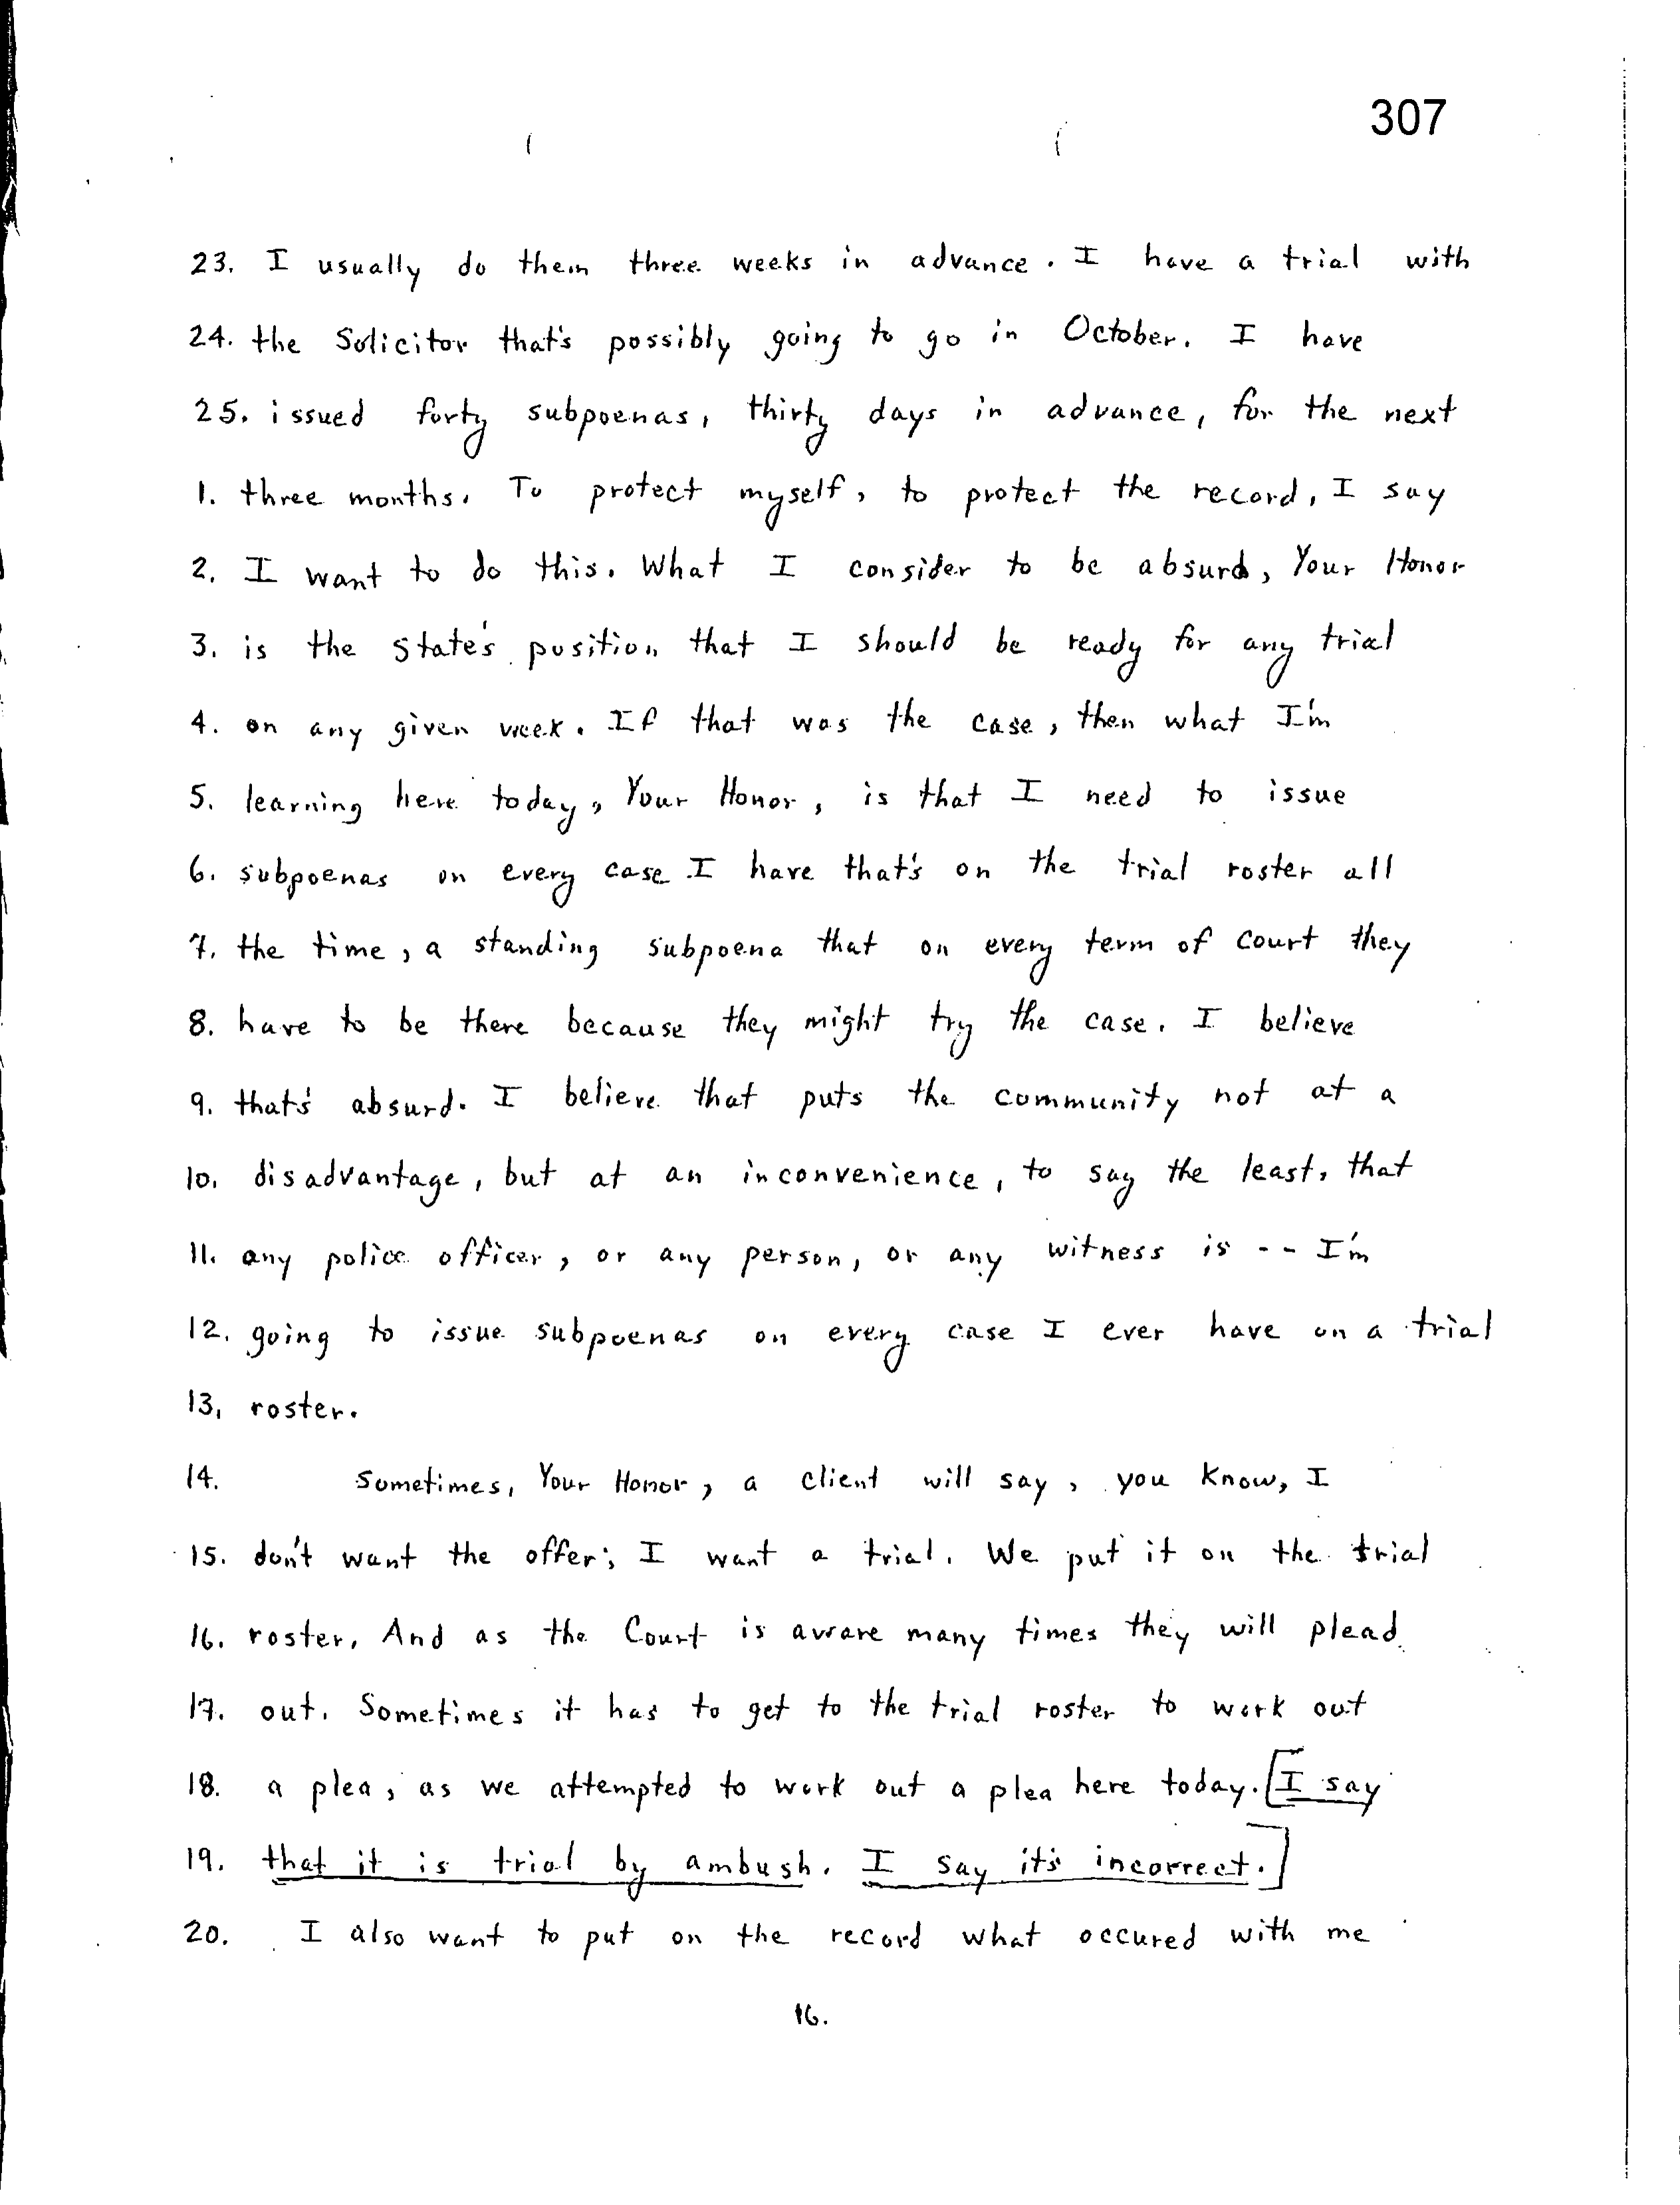 307
23. I usually do them three weeks in advance. I have a trial with
24. the Solicitor that's possibly going to go in October. I have
25. issued forty subpoenas, thirty days in advance, for the next
1. three months. To protect myself, to protect the record, I say
2. I want to do this. What I consider to be absurd, Your Honor
3. is the state's position that I should be ready for any trial
4. on any given week. If that was the case, then what I'm
5. learning here today, Your Honor, is that I need to issue
6. subpoenas on every case I have that's on the trial roster all
7. the time, a standing subpoena that on every term of court they
8. have to be there because they might try the case. I believe
9. that's absurd. I believe that puts the community not at a
10. disadvantage, but at an inconvenience, to say the least, that
11. any police officer, or any person, or any witness is -- I'm
12. going to issue subpoenas on every case I ever have on a trial
13. roster.
14. Sometimes, Your Honor, a client will say, you know, I
15. don't want the offer; I want a trial. We put it on the trial
16. roster. And as the Court is aware many times they will plead
17. out. Sometimes it has to get to the trial roster to work out
18. a plea, as we attempted to work out a plea here today. [I say
19. that it is trial by ambush. I say it's incorrect.]
20. I also want to put on the record what occured with me
16.